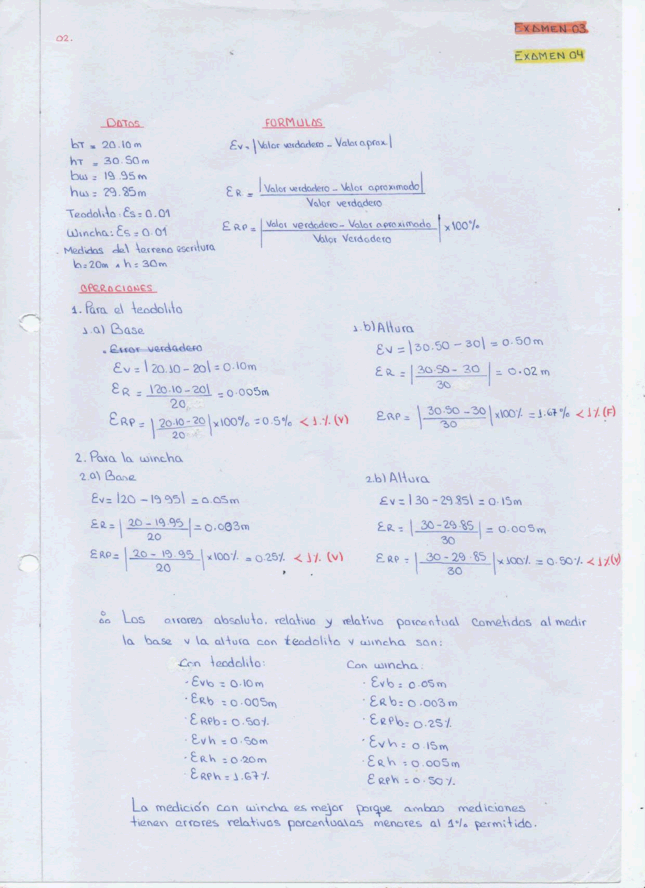 EXAMEN 03
02.
EXAMEN 04
DATOS
FORMULAS
bT = 20.10m
hT = 30.50m
bw = 19.95m
hw = 29.85m
Teodolito: Es = 0.01
Wincha: Es = 0.01
. Medidas del terreno escritura
b = 20m ∧ h = 30m
Ev = |Valor verdadero - Valor aprox|
ER = |Valor verdadero - Valor aproximado|
Valor verdadero
ERP = |Valor verdadero - Valor aproximado| x100%
Valor Verdadero
OPERACIONES
1. Para el teodolito
1.a) Base
. Error verdadero
Ev = |20.10 - 20| = 0.10m
ER = |20.10 - 20| = 0.005m
20
ERP = |20.10 - 20| x100% = 0.5% < 1% (V)
20
1.b) Altura
Ev = |30.50 - 30| = 0.50m
ER = |30.50 - 30| = 0.02m
30
ERP = |30.50 - 30| x100% = 1.67% < 1% (F)
30
2. Para la wincha
2.a) Base
Ev = |20 - 19.95| = 0.05m
ER = |20 - 19.95| = 0.003m
20
ERP = |20 - 19.95| x100% = 0.25% < 1% (V)
20
2.b) Altura
Ev = |30 - 29.85| = 0.15m
ER = |30 - 29.85| = 0.005m
30
ERP = |30 - 29.85| x100% = 0.50% < 1% (V)
30
∴ Los errores absoluto, relativo y relativo porcentual cometidos al medir
la base y la altura con teodolito y wincha son:
Con teodolito:
· Evb = 0.10m
· ERb = 0.005m
· ERPb = 0.50%
· Evh = 0.50m
· ERh = 0.20m
· ERPh = 1.67%
Con wincha:
· Evb = 0.05m
· ERb = 0.003m
· ERPb = 0.25%
· Evh = 0.15m
· ERh = 0.005m
ERPh = 0.50%
La medición con wincha es mejor porque ambas mediciones
tienen errores relativos porcentuales menores al 1% permitido.